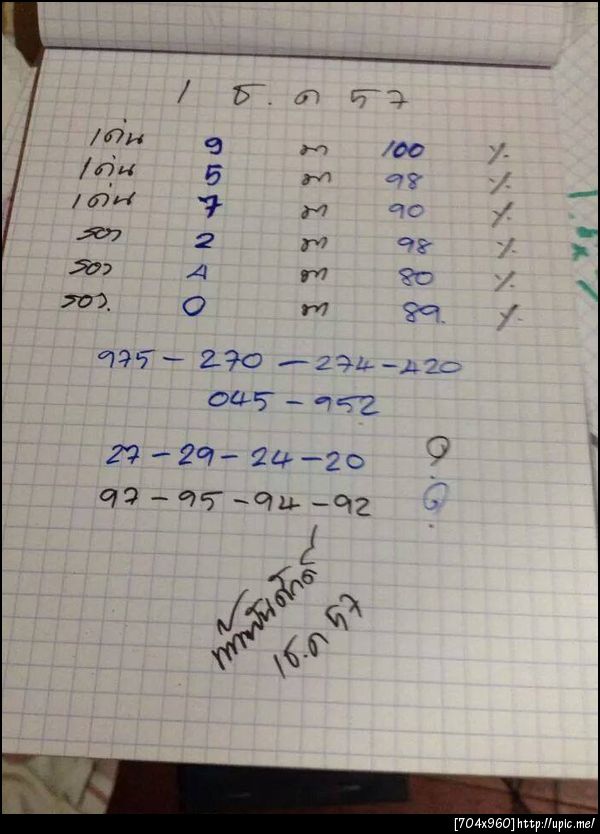 1 ธ.ค 57
เด่น 9 มา 100 %
เด่น 5 มา 98 %
เด่น 7 มา 90 %
รอง 2 มา 98 %
รอง 4 มา 80 %
รอง. 0 มา 89. %
975 - 270 - 274 - 420
045 - 952
27 - 29 - 24 - 20
97 - 95 - 94 - 92
1ธ.ค 57
[704x960]http://upic.me/